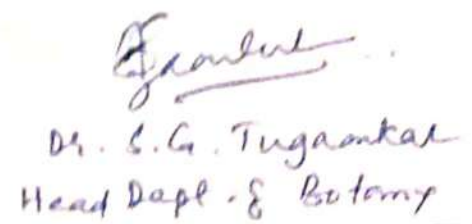 Dr. S.G. Tugaonkar
Head Dapt. of Botany